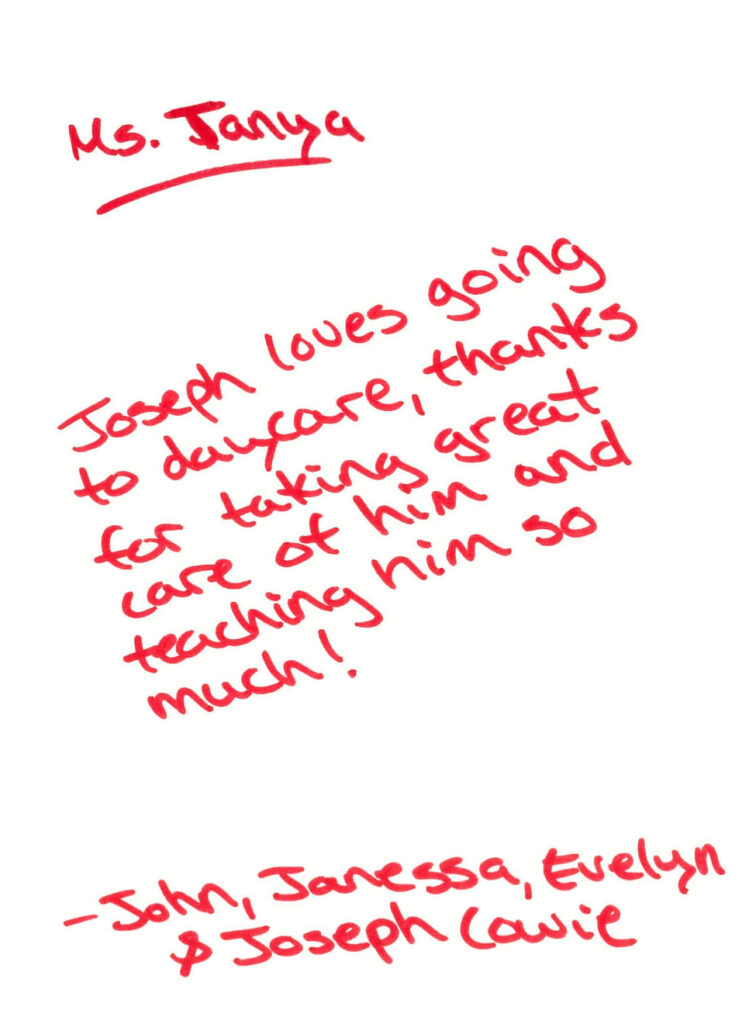 Ms. Tanya
Joseph loves going
to daycare, thanks
for taking great
care of him and
teaching him so
much!
- John, Janessa, Evelyn
& Joseph Cowie